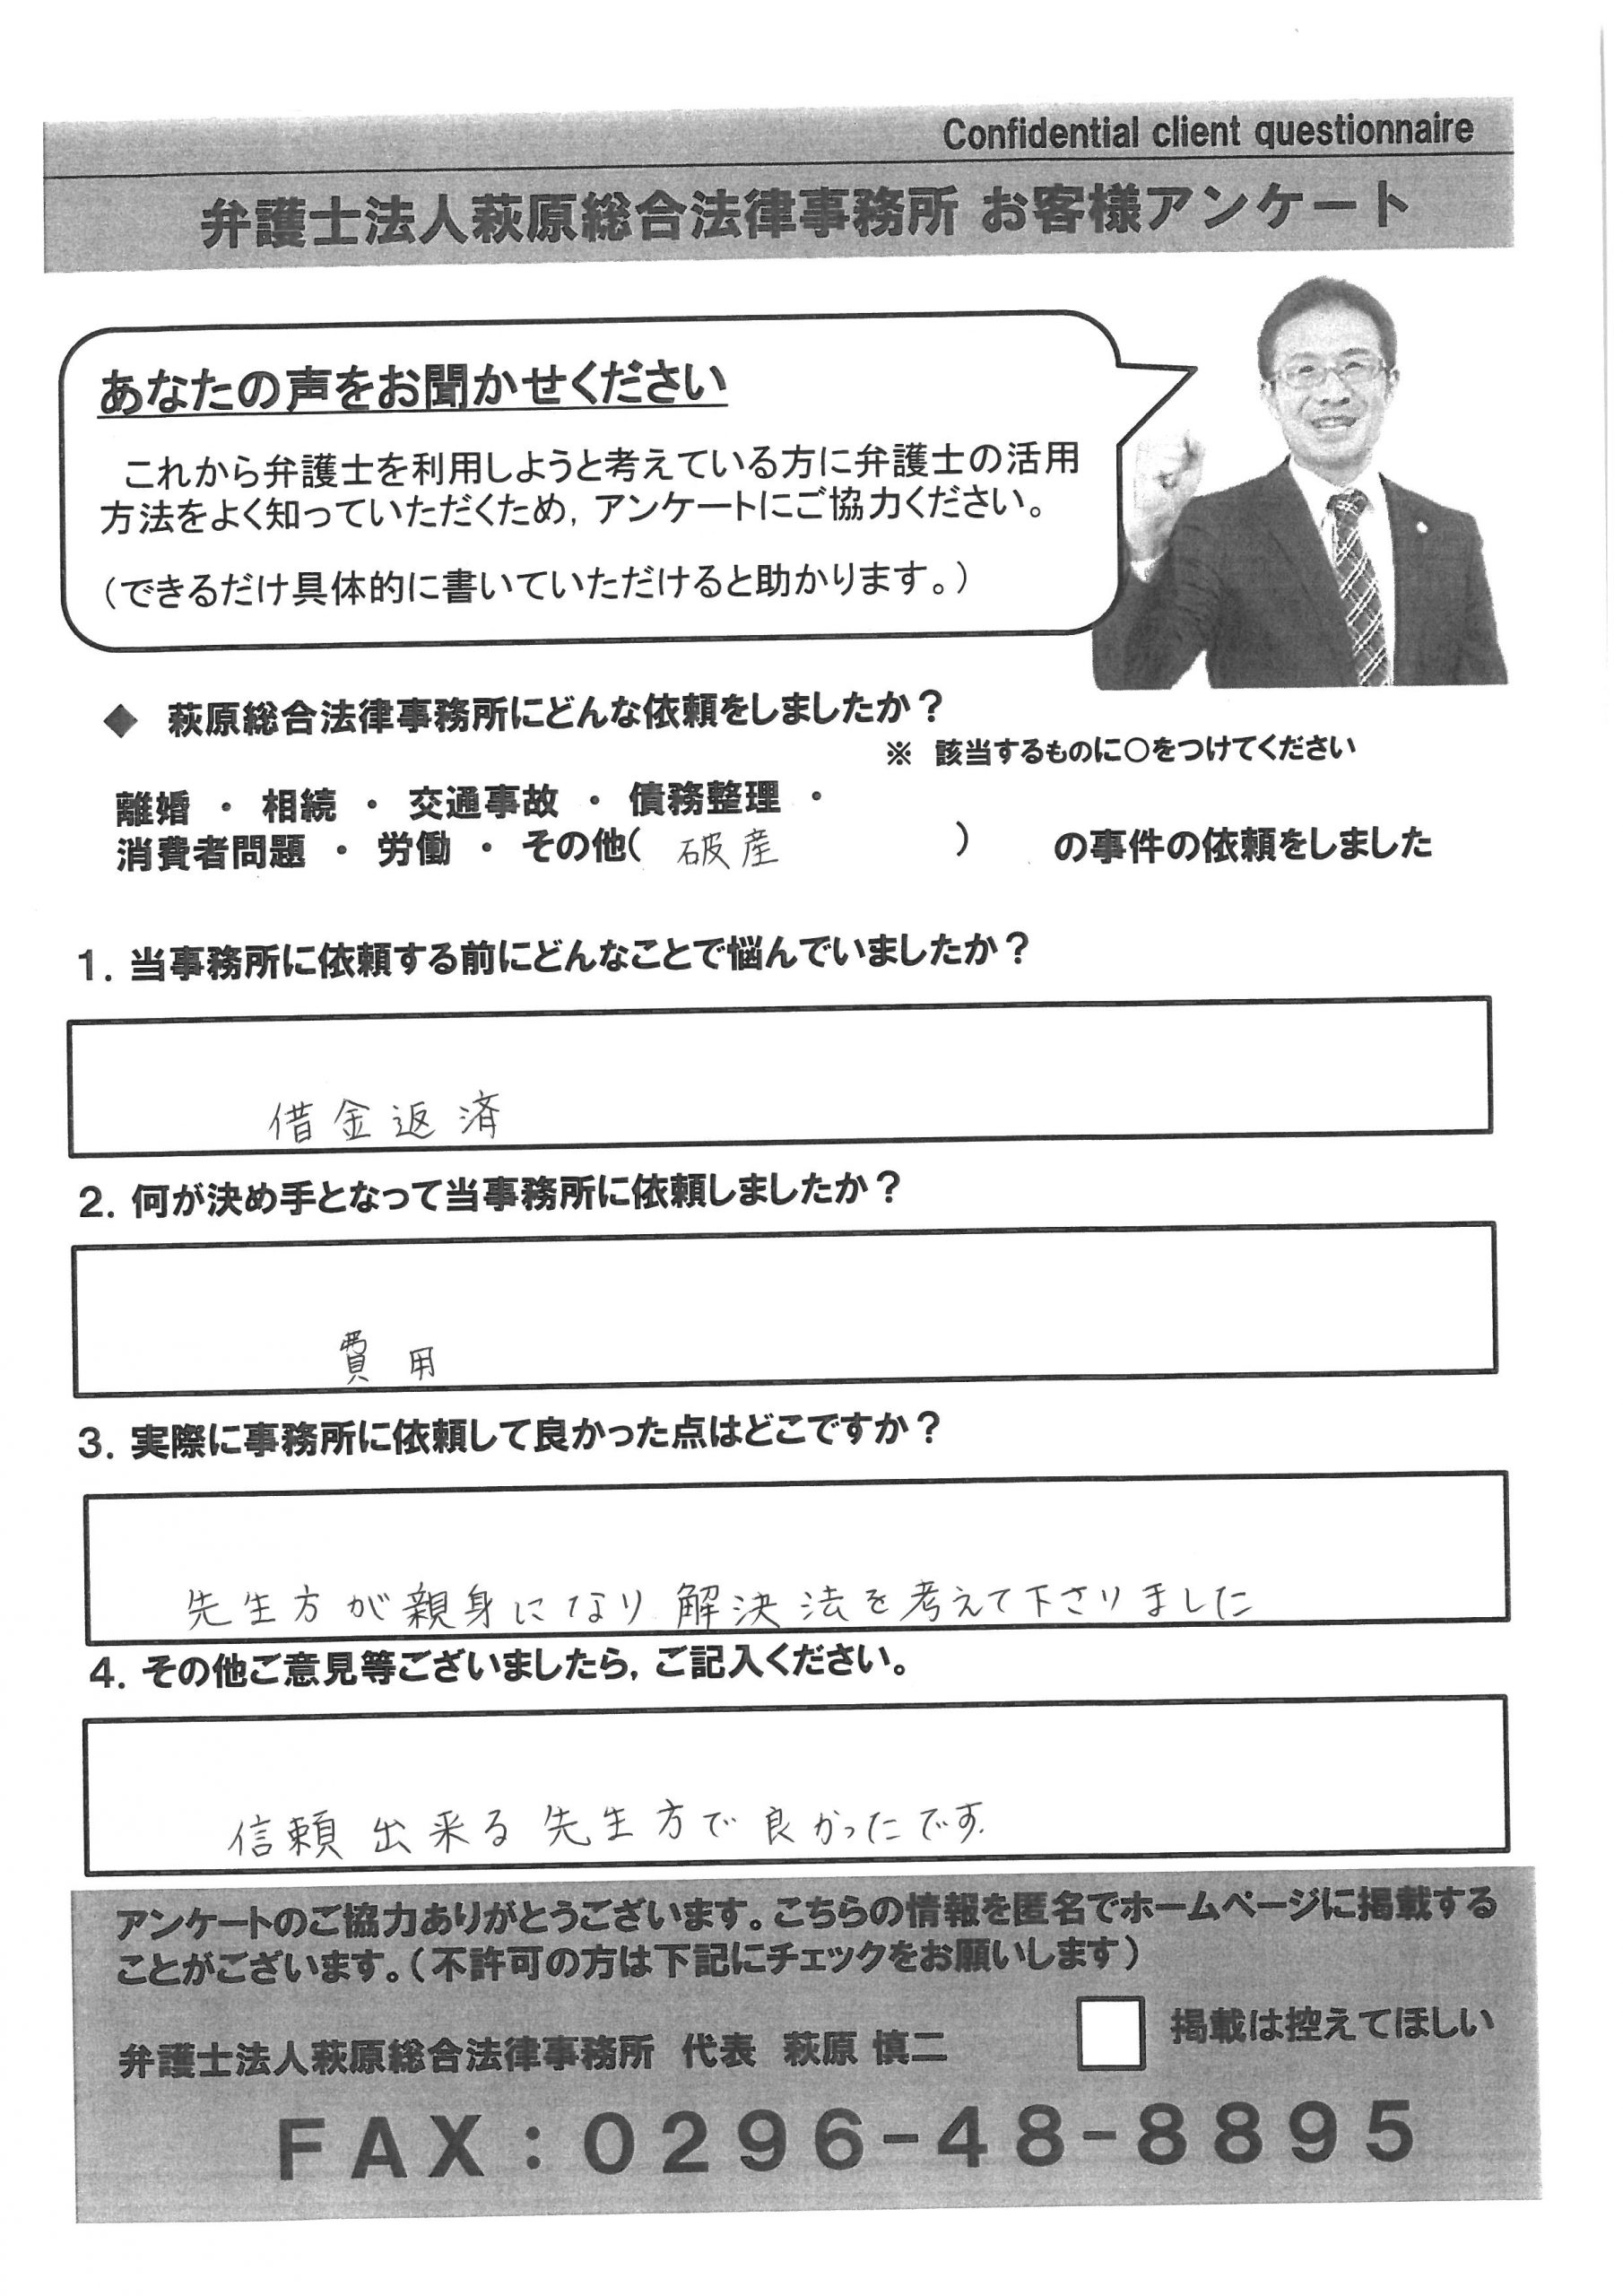 Confidential client questionnaire
弁護士法人萩原総合法律事務所 お客様アンケート
あなたの声をお聞かせください
これから弁護士を利用しようと考えている方に弁護士の活用
方法をよく知っていただくため，アンケートにご協力ください。
（できるだけ具体的に書いていただけると助かります。）
◆ 萩原総合法律事務所にどんな依頼をしましたか？
※ 該当するものに○をつけてください
離婚 ・ 相続 ・ 交通事故 ・ 債務整理 ・
消費者問題 ・ 労働 ・ その他（ 破産 ） の事件の依頼をしました
1. 当事務所に依頼する前にどんなことで悩んでいましたか？
借金返済
2. 何が決め手となって当事務所に依頼しましたか？
費用
3. 実際に事務所に依頼して良かった点はどこですか？
先生方が親身になり解決法を考えて下さりました
4. その他ご意見等ございましたら，ご記入ください。
信頼出来る先生方で良かったです.
アンケートのご協力ありがとうございます。こちらの情報を匿名でホームページに掲載する
ことがございます。（不許可の方は下記にチェックをお願いします）
掲載は控えてほしい
弁護士法人萩原総合法律事務所 代表 萩原 慎二
ＦＡＸ：０２９６－４８－８８９５